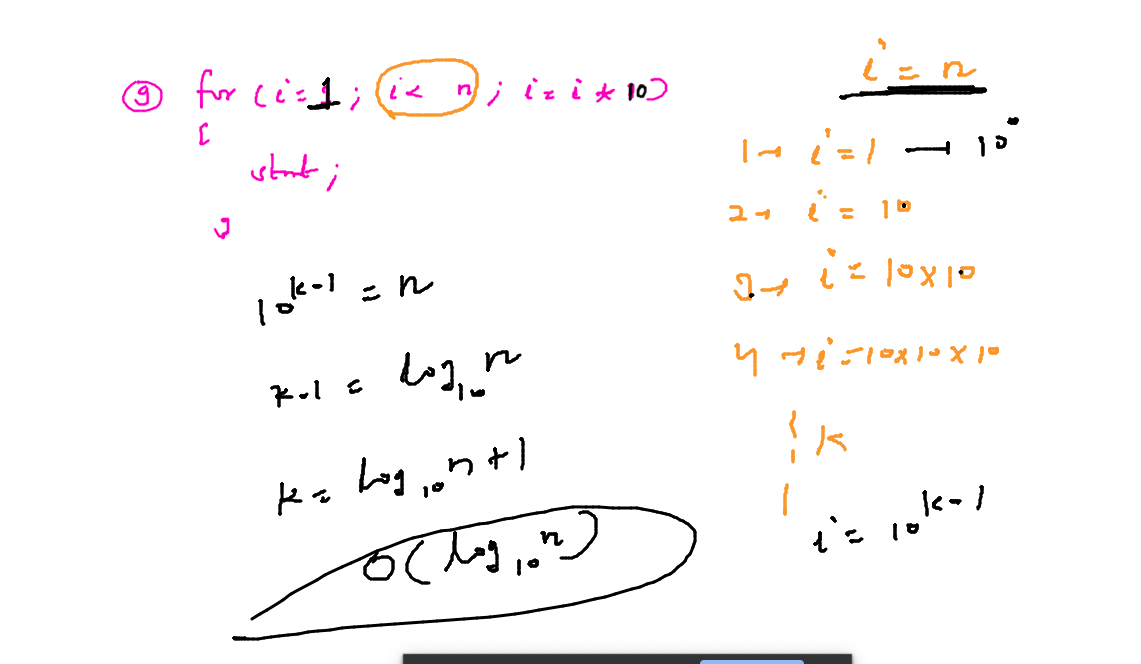 9 for (i=1; i< n; i= i * 10)
{
stmt;
}
10^k-1 = n
k-1 = log10 n
k = log10 n + 1
O(log10 n)
i = n
1 → i = 1 — 10^0
2 → i = 10
3 → i = 10x10
4 → i = 10x10x10
k
i = 10^k-1